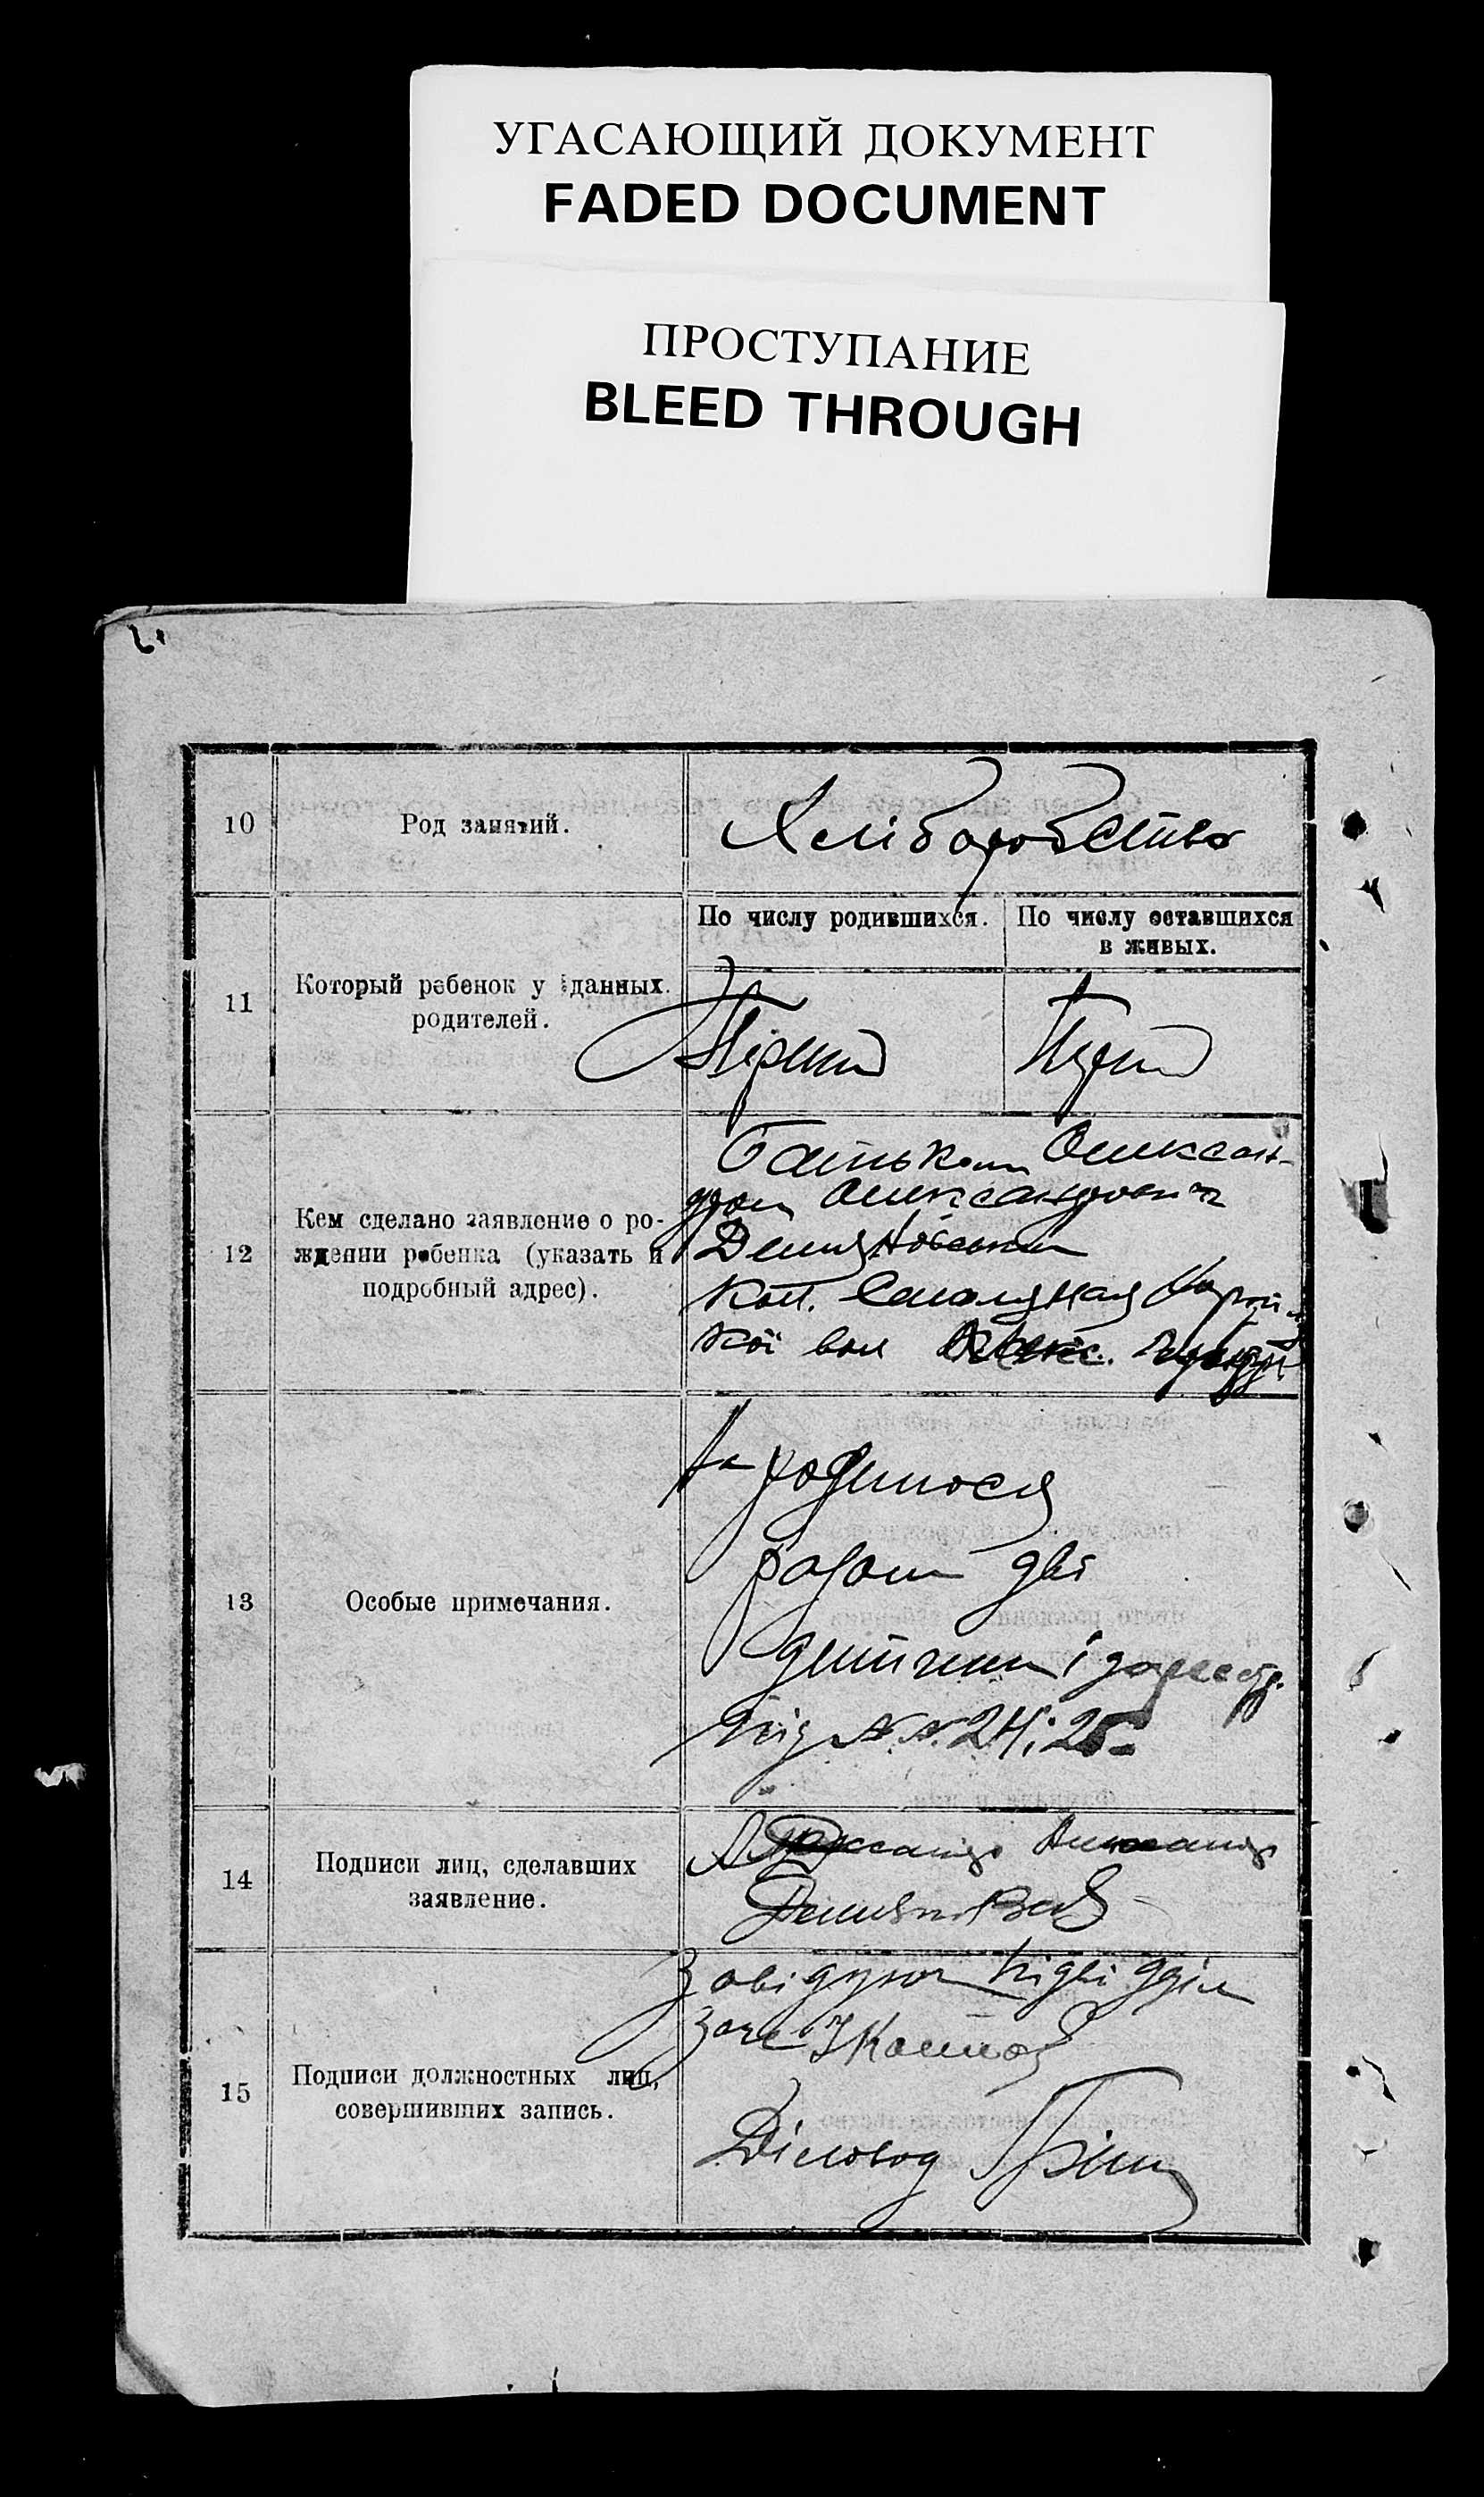 УГАСАЮЩИЙ ДОКУМЕНТ
FADED DOCUMENT
ПРОСТУПАНИЕ
BLEED THROUGH
10
Род занятий.
Хліборобство
11
Который ребенок у данных
родителей.
По числу родившихся.
По числу оставшихся
в живых.
12
Кем сделано заявление о ро-
ждении ребенка (указать и
подробный адрес).
Батьком Олексан-
дром Олександрович
кол.
кої вол
13
Особые примечания.
Народилося
разом дві
дитини і зареестр.
під №№ 24 і 25
14
Подписи лиц, сделавших
заявление.
15
Подписи должностных лиц,
совершивших запись.
Завідуюч
Діловод